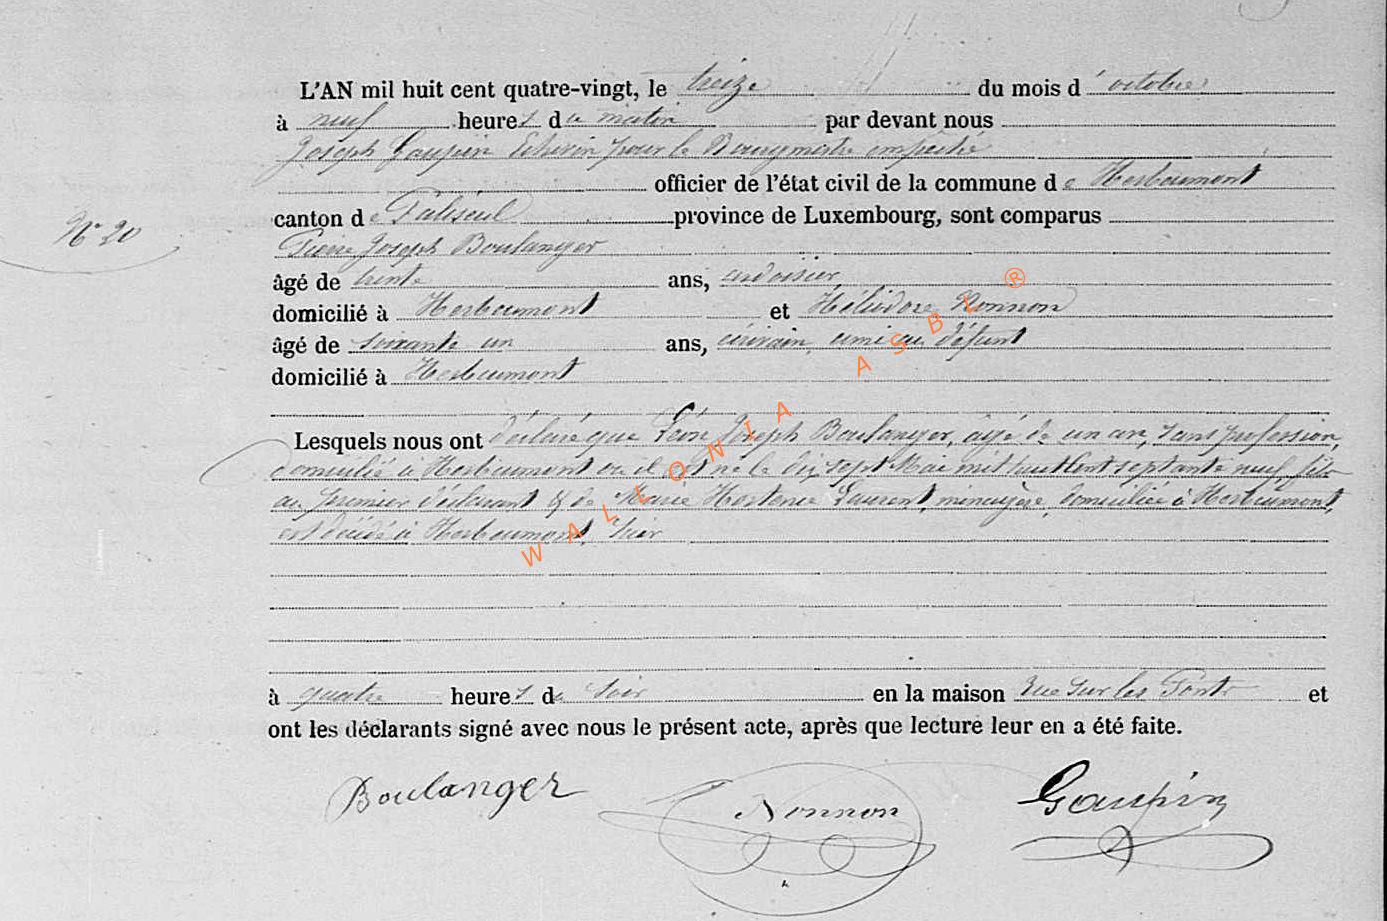 L'AN mil huit cent quatre-vingt, le treize du mois d'octobre
à neuf heures du matin par devant nous
Joseph Gaupin Echevin pour le Bourgmestre empêché
officier de l'état civil de la commune de Herbeumont
N° 20
canton de Paliseul province de Luxembourg, sont comparus
Pierre Joseph Boulanger
âgé de trente ans, ardoisier
domicilié à Herbeumont et Héliodore Nonnon
âgé de soixante un ans, écrivain, ami au défunt
domicilié à Herbeumont
Lesquels nous ont déclaré que Léon Joseph Boulanger, âgé de un an, sans profession,
domicilié à Herbeumont où il est né le dix sept Mai mil huit cent septante neuf fils
au premier déclarant & de Marie Hortense Laurent, ménagère, domiciliée à Herbeumont,
est décédé à Herbeumont, hier
à quatre heures du soir en la maison Rue sur les Ponts et
ont les déclarants signé avec nous le présent acte, après que lecture leur en a été faite.
Boulanger Nonnon Gaupin
WALLONIA ASBL ®